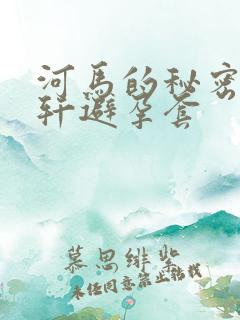 河马的秘密
轩避孕套
慕思绯紫
未经同意禁止转载